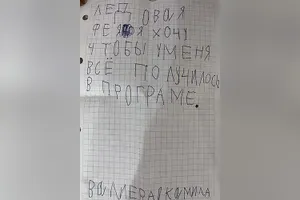 ЛЕДОВАЯ
ФЕЯ Я ХОЧУ
ЧТОБЫ УМЕНЯ
ВСЁ ПОЛУЧИЛОСЬ
В ПРОГРАМЕ.
ВАЛИЕВА КАМИЛА